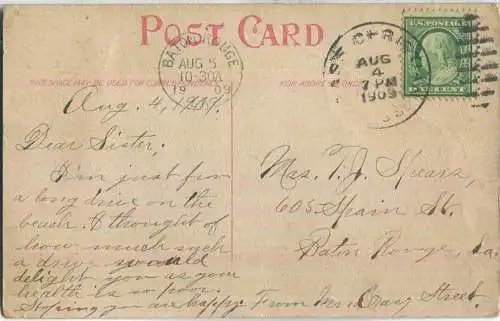 POST CARD
BATON ROUGE
AUG 5
10-30A
1909
PASS CHRIS
AUG
4
7 PM
1909
U.S. POSTAGE
ONE CENT
THIS SPACE MAY BE USED FOR CORRESPONDENCE
FOR ADDRESS
Aug. 4, 1909.
Dear Sister,
I'm just from
a long drive on the
beach. I thought of
how much such
a drive would
delight you as your
health is so poor.
Hoping you are happy. From
Street.
Mrs. T. J. Spears,
605 Spain St.
Baton Rouge, La.